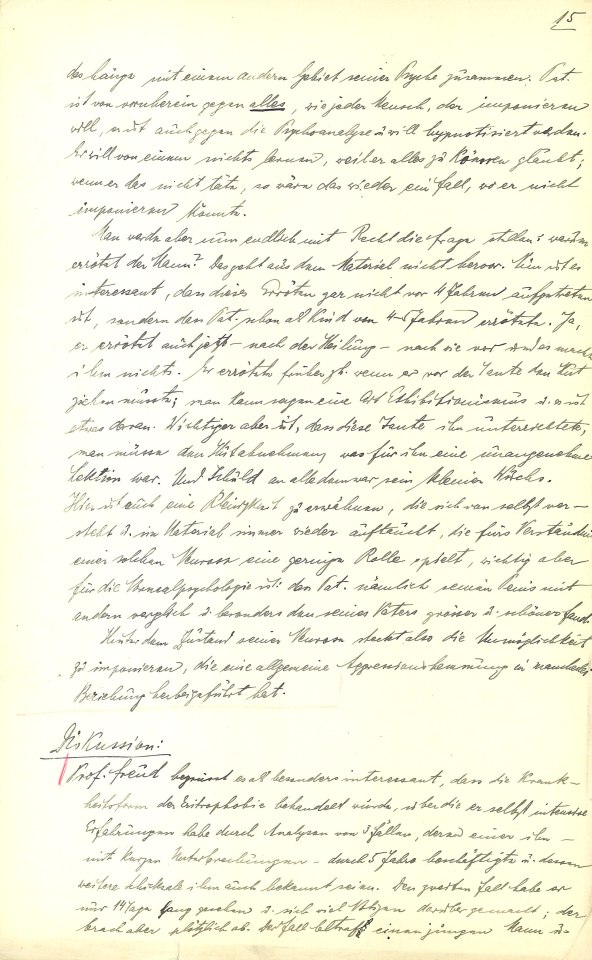 15
das hänge mit einem andern Gebiet seiner Psyche zusammen. Pat.
ist von vornherein gegen alles, wie jeder Mensch, der imponieren
will, auch gegen die Psychoanalyse u. will hypnotisiert werden.
Er will von einem nichts lernen, weil er alles zu können glaubt;
wenn er das nicht täte, so wäre das wieder ein Fall, wo er nicht
imponieren könnte.
Man werde aber nun endlich mit Recht die Frage stellen: warum
errötet der Mann? Das geht aus dem Material nicht hervor. Nun ist es
interessant, dass dieses Erröten gar nicht vor 4 Jahren aufgetreten
ist, sondern dass Pat. schon als Kind von 4-5 Jahren errötete. Ja,
er errötet auch jetzt - nach der Heilung - nach wie vor und es macht
ihm nichts. Er errötete früher zb. wenn er vor der Tante den Hut
ziehen musste; man kann sagen eine Art Exhibitionismus u. es ist
etwas daran. Wichtiger aber ist, dass diese Tante ihn unterrichtete,
man müsse den Hut abnehmen, was für ihn eine unangenehme
Lektion war. Und Schuld an alledem war sein kleiner Wuchs.
Hier ist auch eine Kleinigkeit zu erwähnen, die sich von selbst ver-
steht u. im Material immer wieder auftaucht, die fürs Verständnis
einer solchen Neurose eine geringe Rolle spielt, wichtig aber
für die Sexualpsychologie ist: dass Pat. nämlich seinen Penis mit
andern verglich u. besonders den seines Vaters grösser u. schöner fand.
Hinter dem Zustand seiner Neurose steckt also die Unmöglichkeit
zu imponieren, die eine allgemeine Aggressionshemmung in mancherlei
Beziehung herbeigeführt hat.
Diskussion:
Prof. Freud begrüsst es als besonders interessant, dass die Krank-
heitsform der Eritrophobie behandelt wurde, über die er selbst intensive
Erfahrungen habe durch Analysen von 3 Fällen, deren einer ihn -
mit kurzen Unterbrechungen - durch 5 Jahre beschäftigte u. dessen
weitere Schicksale ihm auch bekannt seien. Den zweiten Fall habe er
nur 14 Tage lang gesehen u. sich viel Notizen darüber gemacht; der
brach aber plötzlich ab. Der Fall betraf einen jungen Mann u.